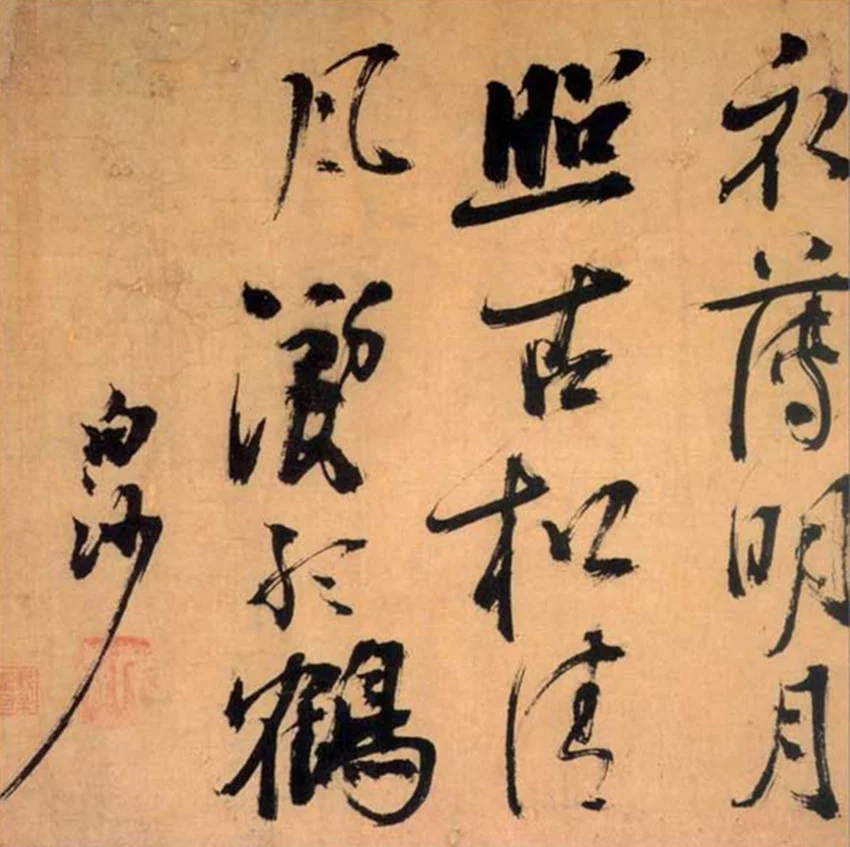 衣薄明月
照古松清
風於鶴
白沙